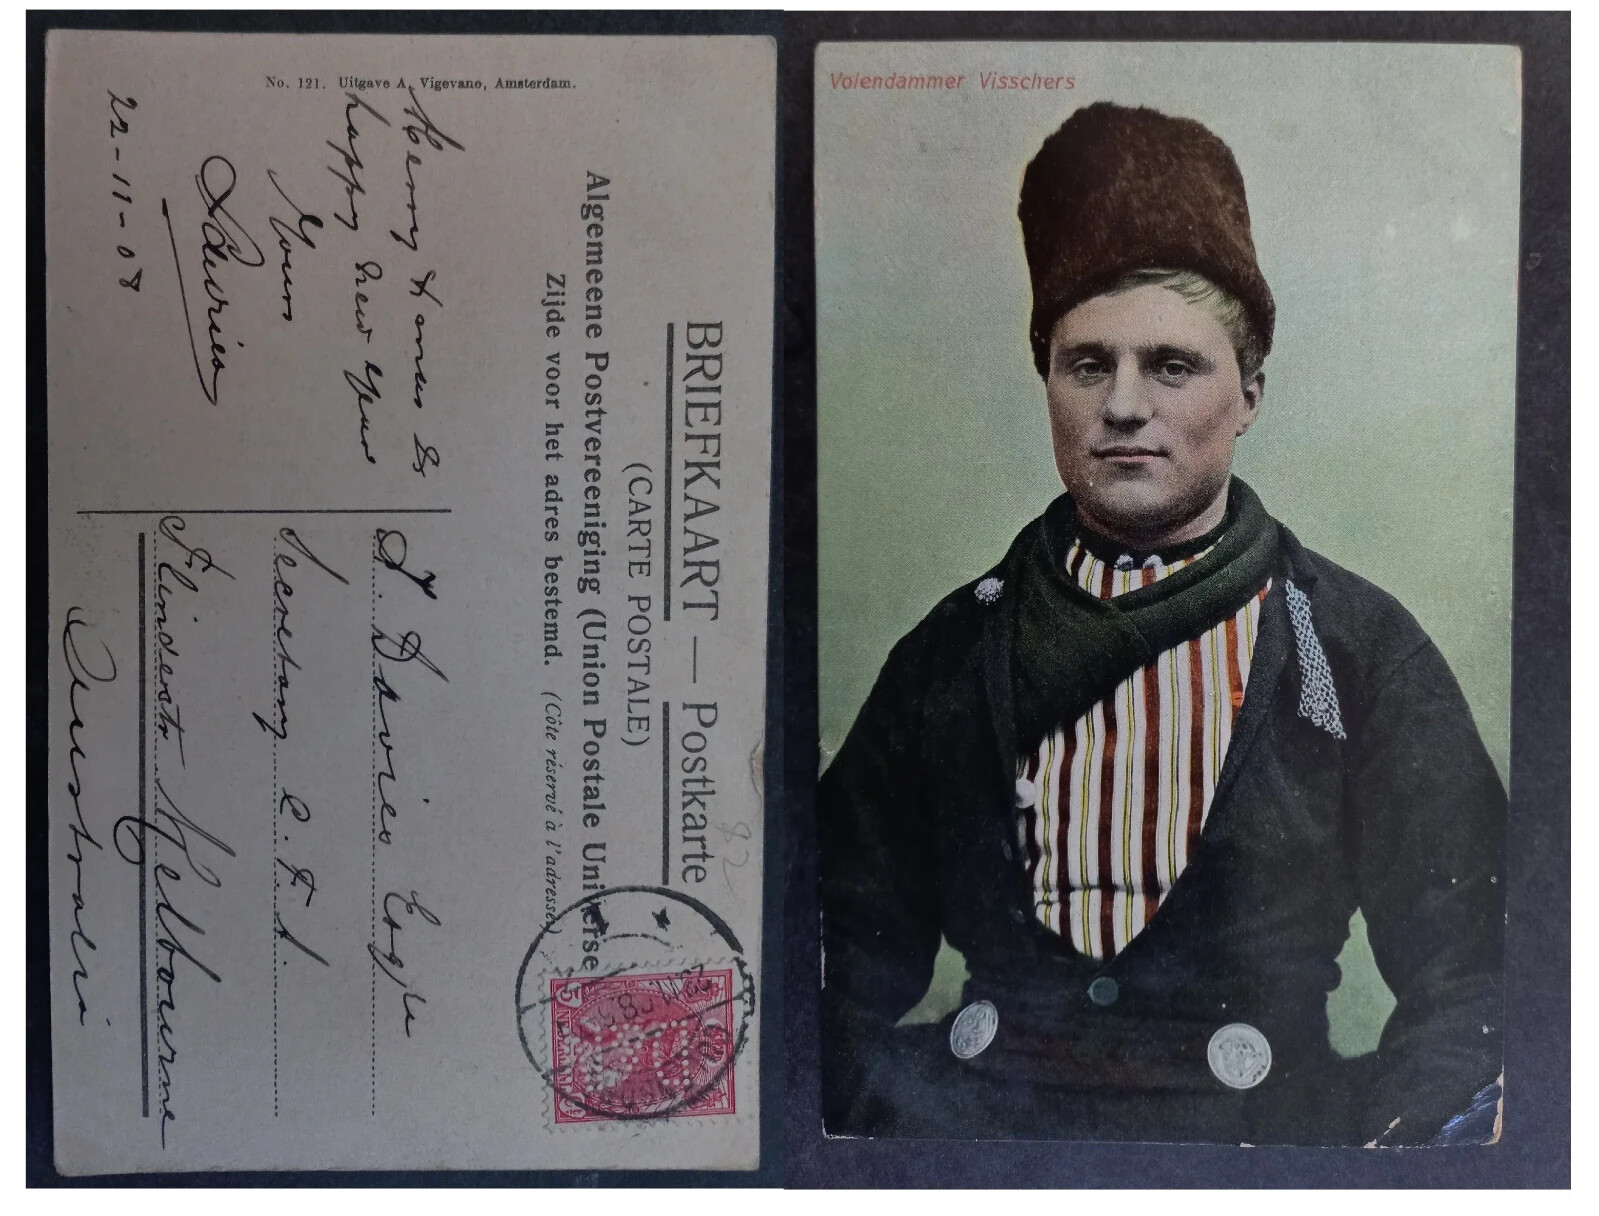 No. 121. Uitgave A. Vigevano, Amsterdam.
BRIEFKAART — Postkarte
(CARTE POSTALE)
Algemeene Postvereeniging (Union Postale Universelle)
Zijde voor het adres bestemd. (Côté réservé à l'adresse)
Merry Xmas &
happy New Year
Yours
22-11-08
Davies Esqre
Secretary C.T.A.
Flinders St Melbourne
Australia
82
5
Volendammer Visschers